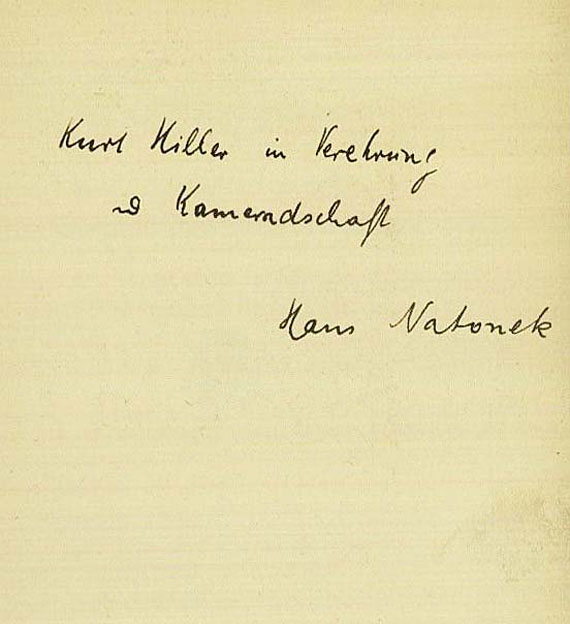 Kurt Hiller in Verehrung
und Kameradschaft
Hans Natonek